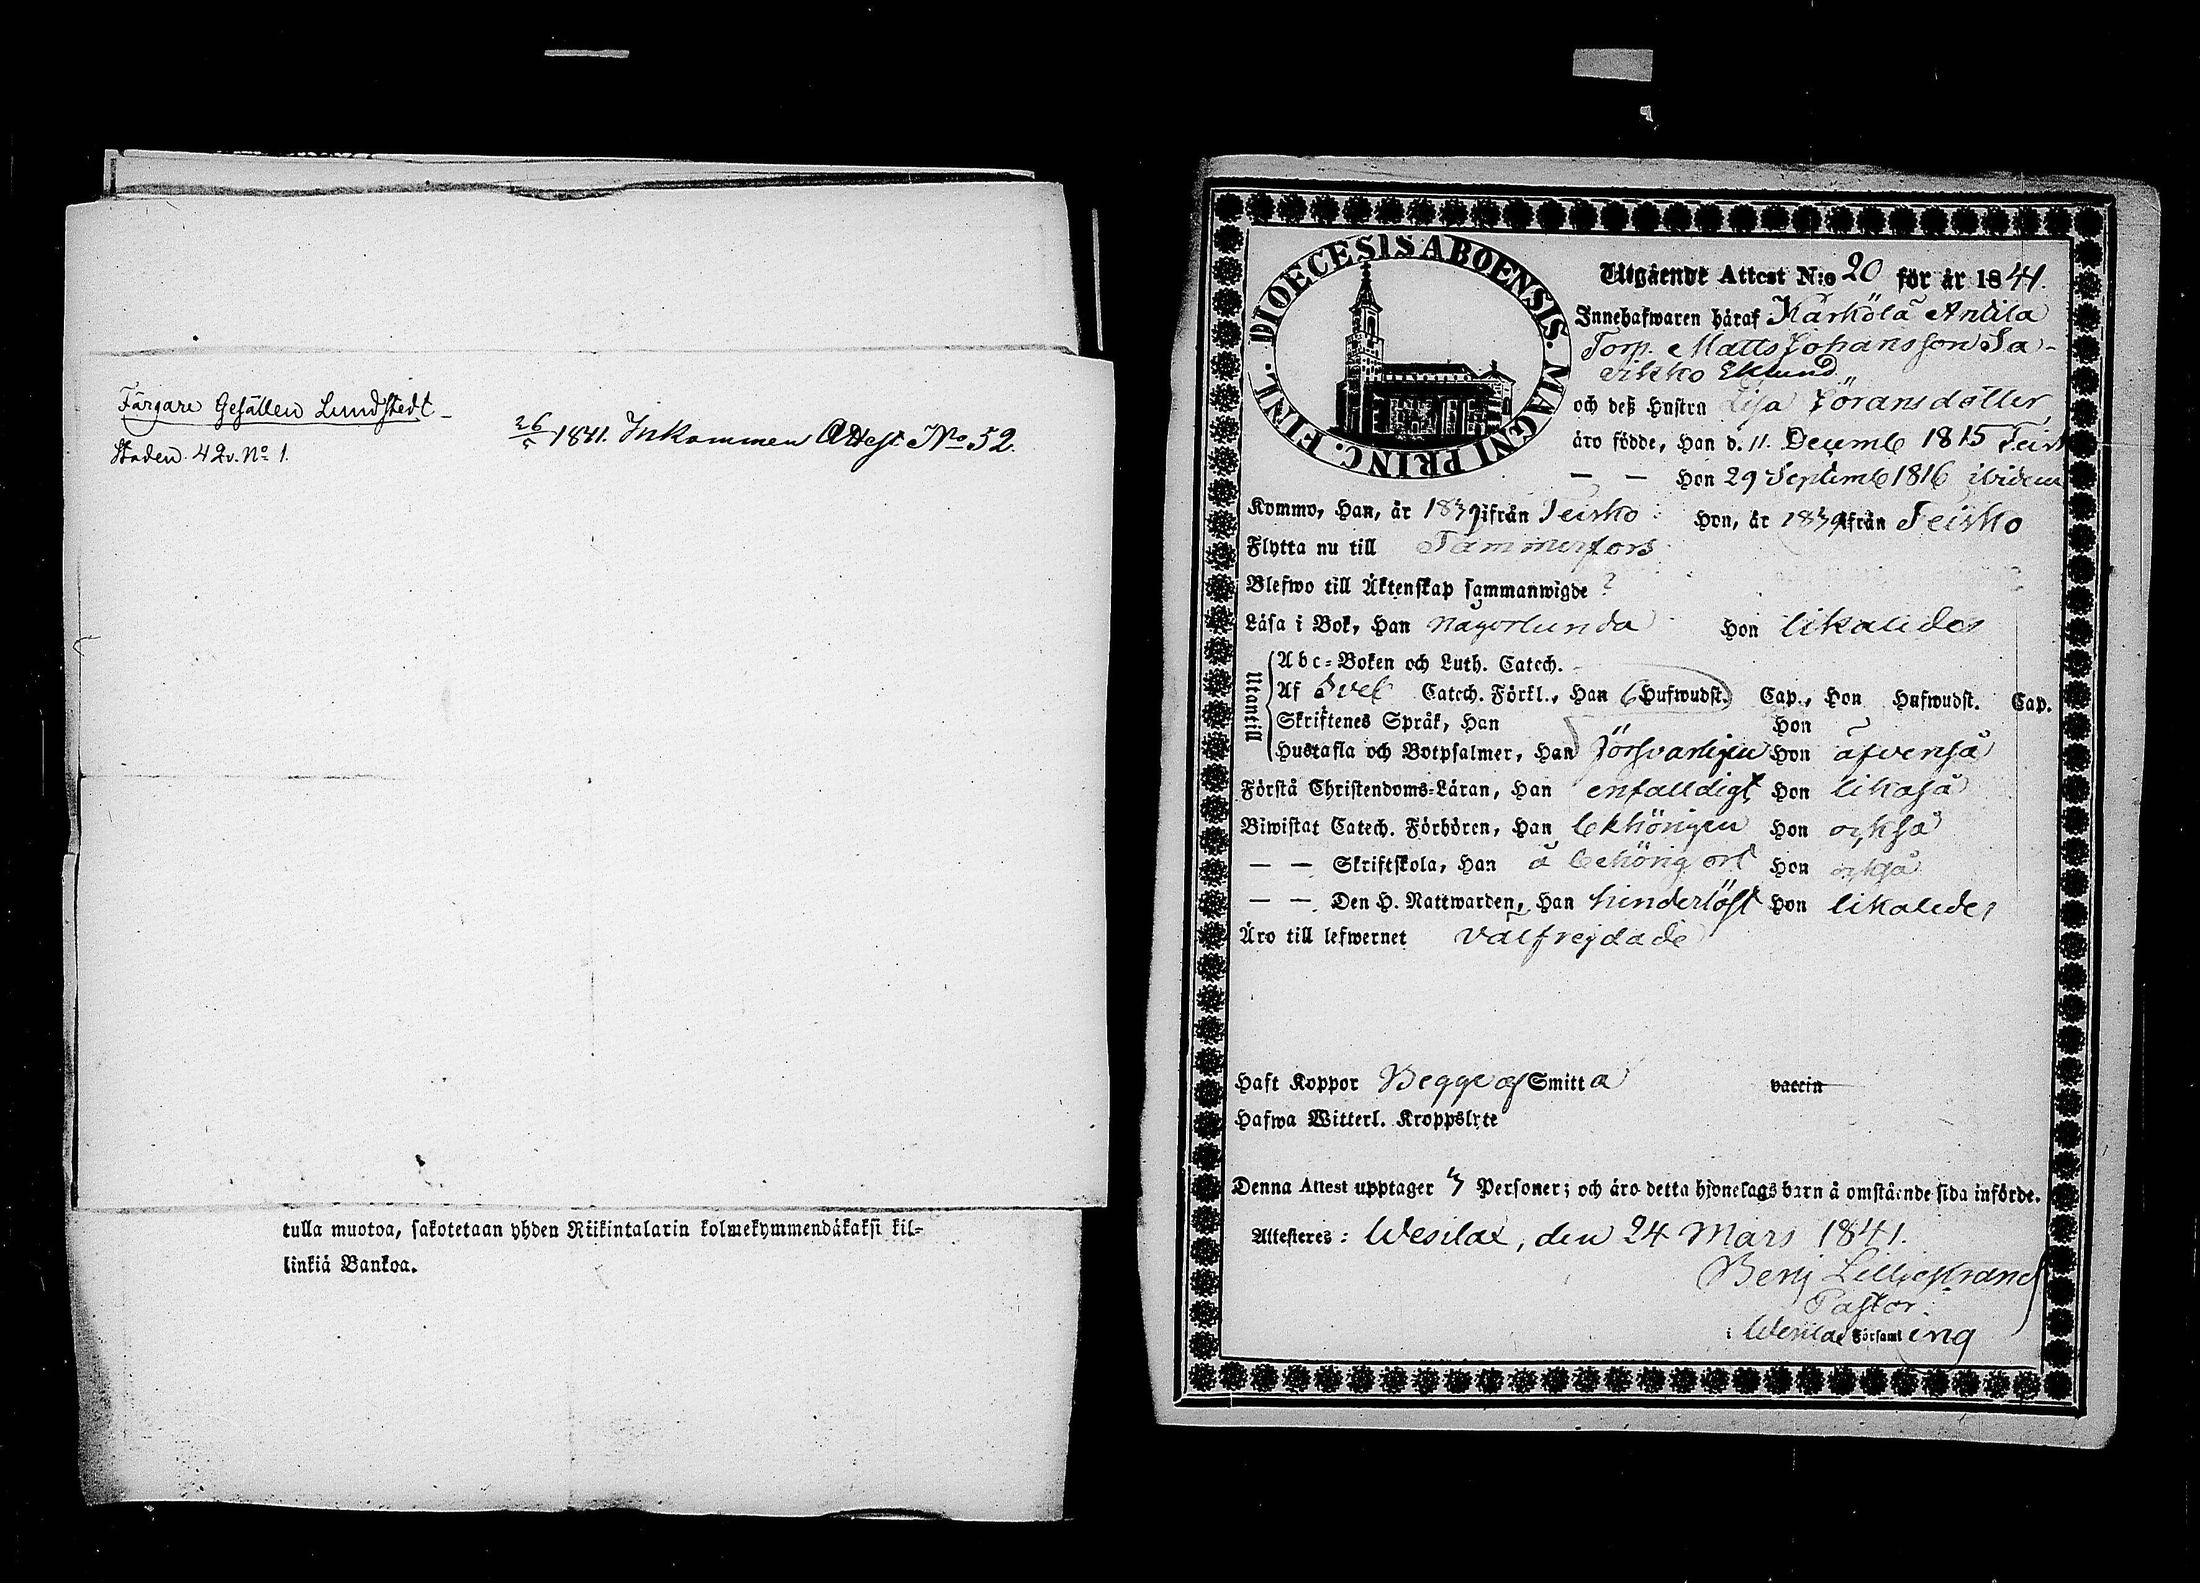 Färgare Gesällen Lundstedt
Staden 42. No 1.
26/5 1841. Inkommen Attest No 52.
tulla muotoa, sakotetaan yhden Riikintalarin kolmekymmendäkaksi kil-
linkiä Bankoa.
DIOECESIS ABOENSIS. MAGNI PRINC. FINL.
Utgående Attest N:o 20 för år 1841.
Innehafwaren häraf Kärkölä Anttila
Torp. Matts Johansson
Eklund
och deß Hustru Lisa Jöransdotter,
äro födde, Han d. 11. Decemb 1815
— — Hon 29 Septemb 1816 ibidem
Kommo, Han, år 1839 ifrån Teisko Hon, år 1839 ifrån Teisko
Flytta nu till Tammerfors
Blefwo till Äktenskap sammanwigde ?
Läsa i Bok, Han någorlunda Hon likaledes
Utantill
Abc-Boken och Luth. Catech.
Af Svel Catech. Förkl., Han 6 Hufwudst. Cap., Hon Hufwudst. Cap.
Skriftenes Språk, Han Hon
Hustafla och Botpsalmer, Han försvarligen Hon äfvenså
Förstå Christendoms-Läran, Han enfaldigt Hon likaså
Biwistat Catech. Förhören, Han behörigen Hon också
— — Skriftskola, Han å behörig ort Hon också
— — Den H. Nattwarden, Han hinderlöst Hon likaledes
Äro till lefwernet välfrejdade
Haft Koppor Begge af Smitta vaccin
Hafwa Witterl. Kroppslyte
Denna Attest upptager 3 Personer; och äro detta hjonelags barn å omstående sida införde.
Attesteres: Wesilax, den 24 Mars 1841.
Benj Lilljestrand
Pastor.
i Wesilax Församling